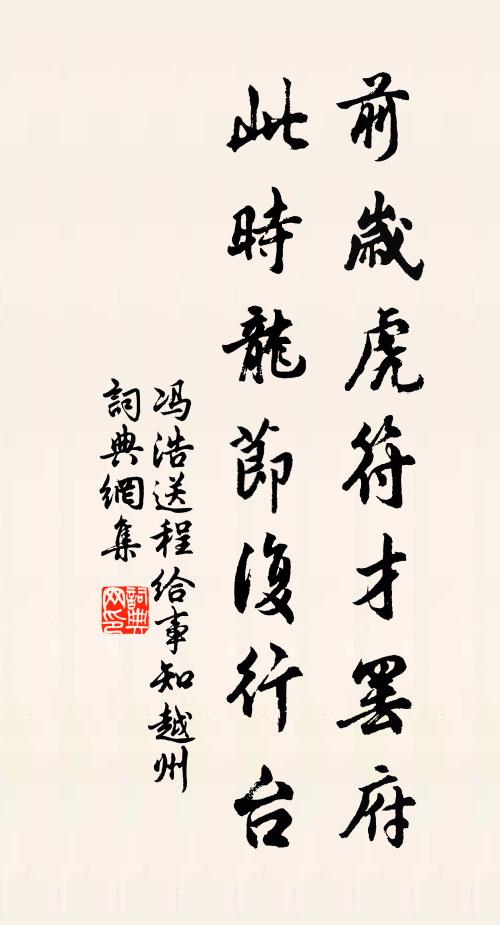 前歲虎符才罢府
此時龍節復行台
冯浩送程给事知越州
詞典網集
詞典网印